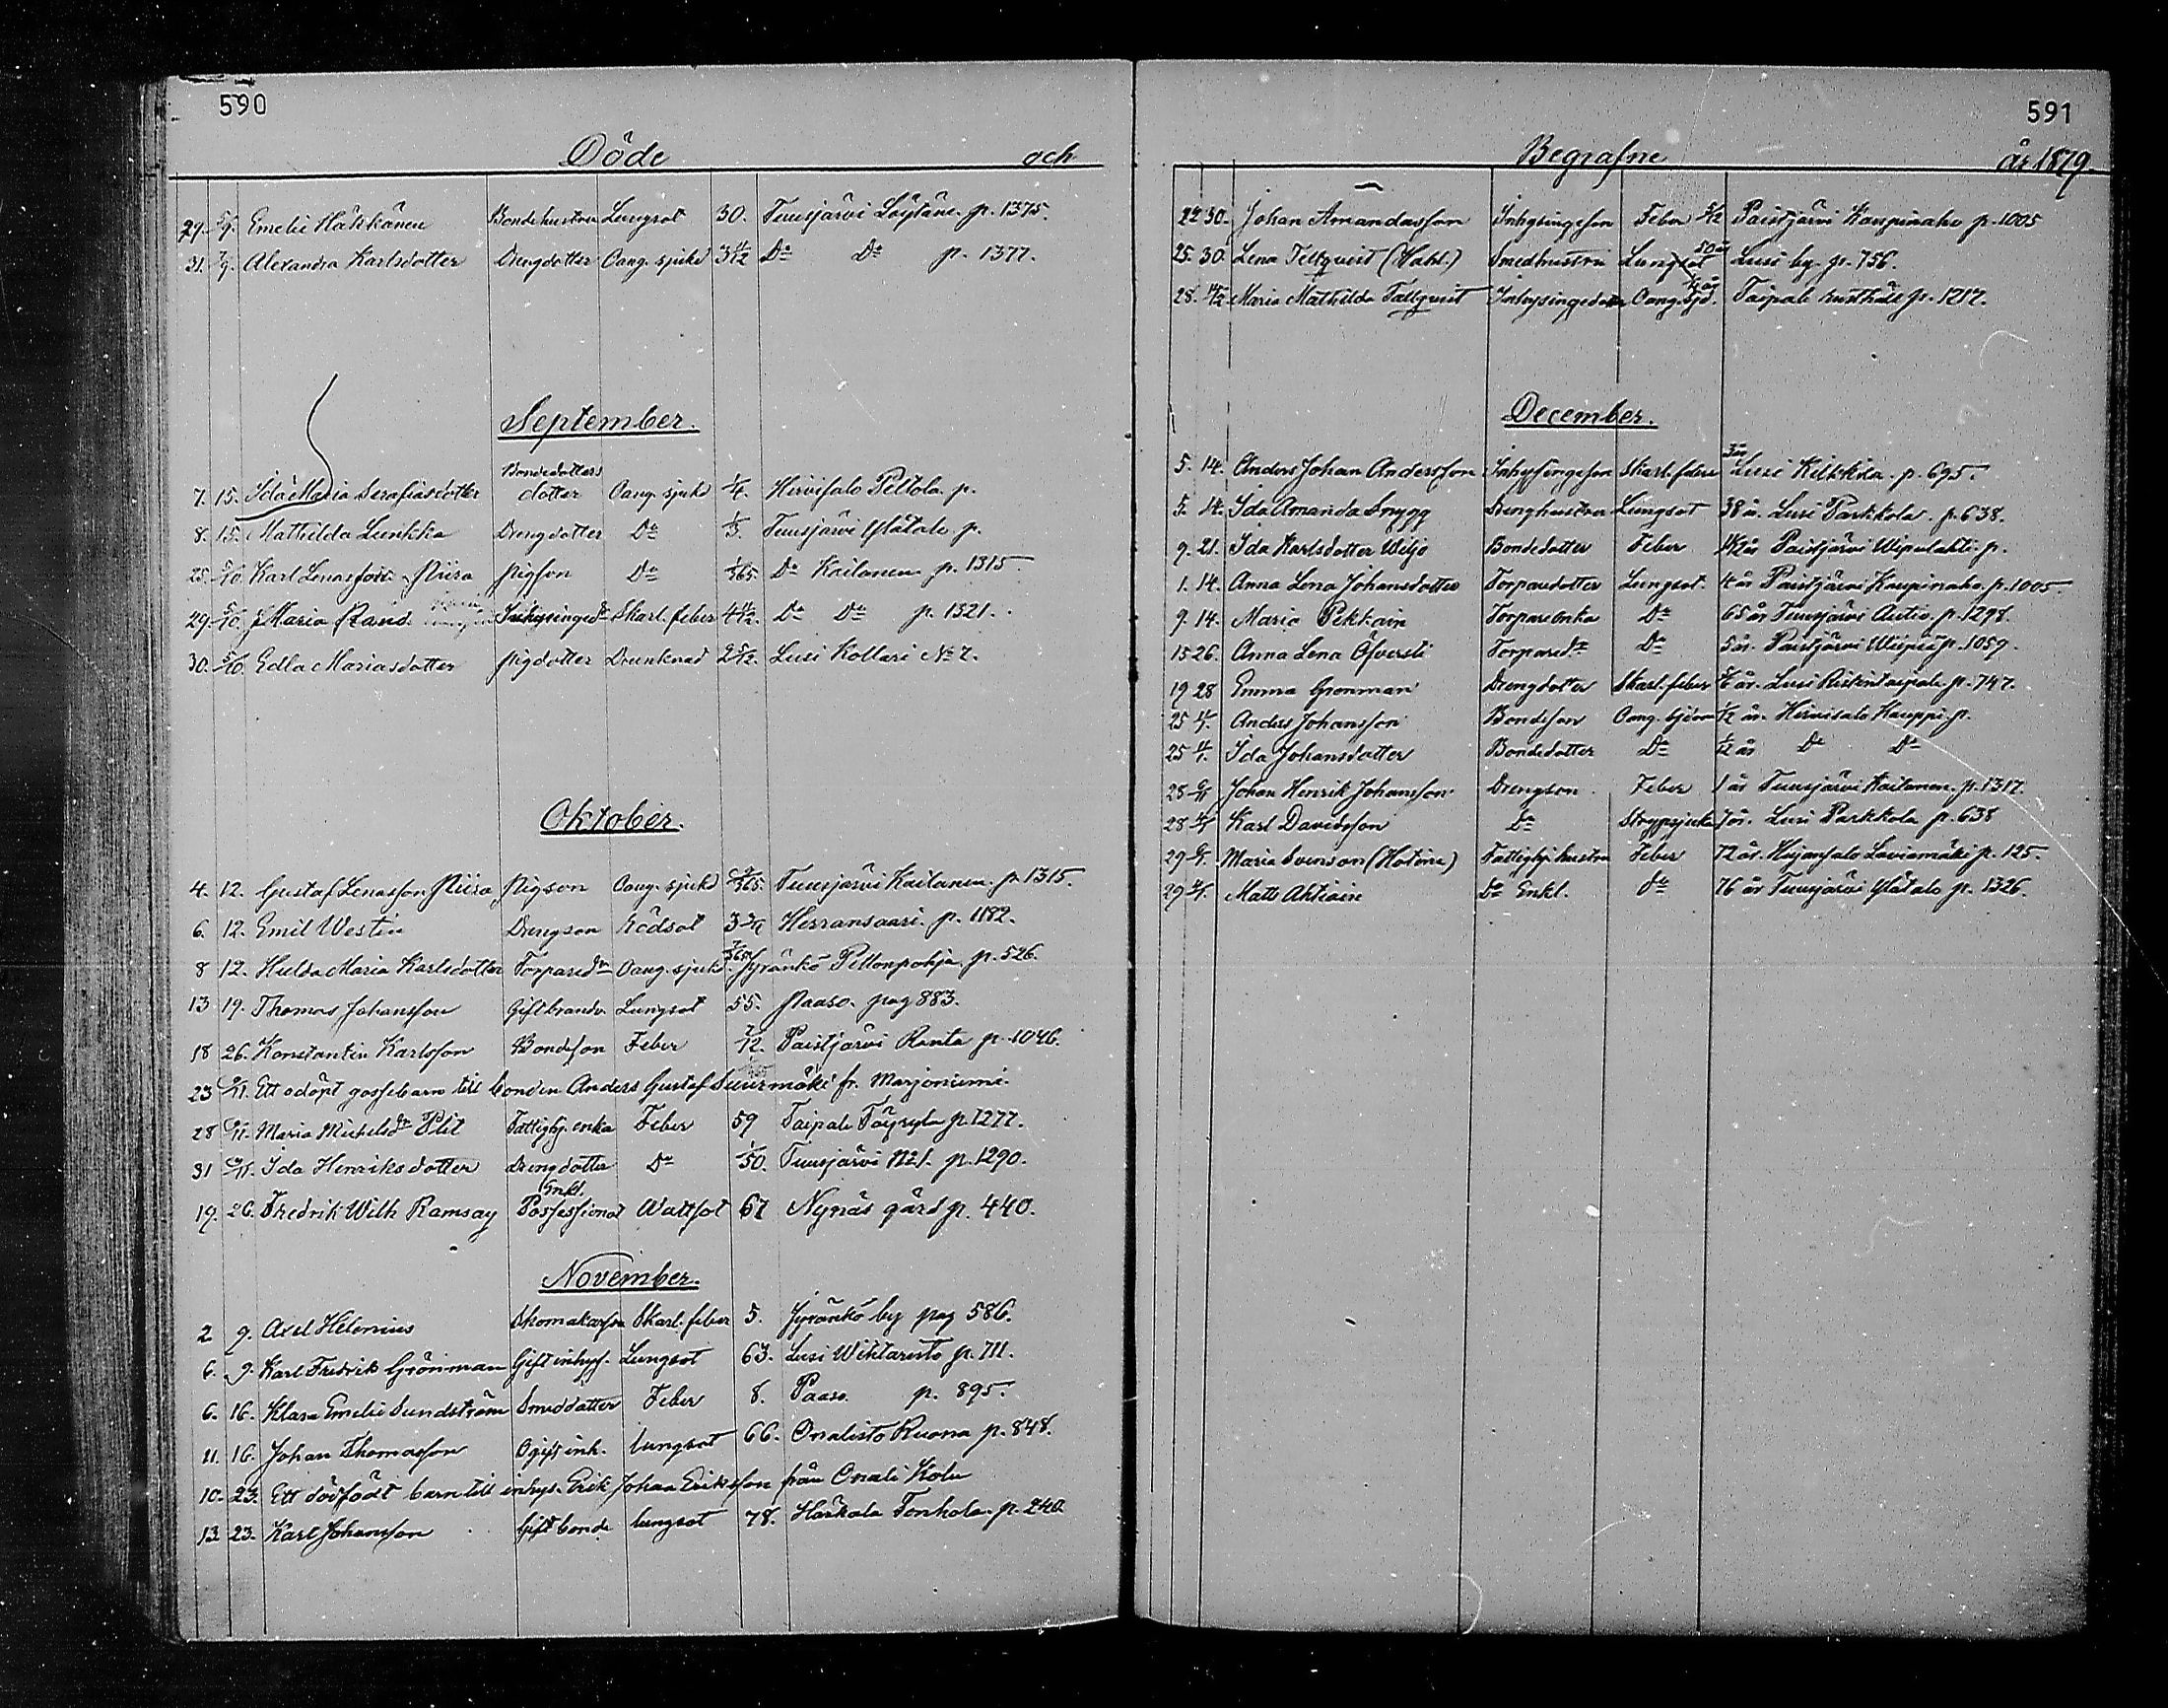 590
Döde och
29. 5/9. Emelie Häkkänen Bondehustru Lungsot 30. Tuusjärvi Löytäne p. 1375.
31. 7/9. Alexandra Karlsdotter Drengdotter Oang. sjukd 3 11/12 Do Do p. 1377.
September.
Bondedotters
7. 15. Ida Maria Serafiasdotter dotter Oang. sjukd 1/4. Hirvisalo Peltola p.
8. 15. Mathilda Lunkka Drengdotter Do 1/3. Tuusjärvi Ylätalo p.
25. 5/10. Karl Lenasson Niira Pigson Do 1/365. Do Kailanen p. 1315.
29. 5/10. Maria Rand. Inhysinged. Skarl. feber 4 11/12. Do Do p. 1321.
30. 5/10. Edla Mariasdotter Pigdotter Drunknad 2 5/12. Lusi Kollari No 7.
Oktober.
4. 12. Gustaf Lenasson Niira Pigson Oang. sjukd /365. Tuusjärvi Kailanen p. 1315.
6. 12. Emil Westin Drengson Rödsot 3 Herransaari p. 1182.
8 12. Hulda Maria Karlsdotter Torpared. Oang. sjukd 7/365 Jyränkö Peltonpohja p. 526.
13 19. Thomas Johansson Gift brandv. Lungsot 55. Paaso. pag 883.
18 26. Konstantin Karlsson Bondeson Feber 7/12. Paistjärvi Ranta p. 1046.
23 2/11. Ett odöpt gossebarn till bonden Anders Gustaf Suurmäki fr. Marjoniemi.
28 2/11. Maria Mickelsd. Plit Fattighj. enka Feber 59 Taipale Täyrylä p. 1277.
31 2/11. Ida Henriksdotter Drengdotter Do 1/50. Tuusjärvi No 1. p. 1290.
Enkl.
19. 26. Fredrik Wilh Ramsay Possessionat Wattsot 67 Nynäs gård p. 440.
November.
2 9. Axel Helenius Skomakarson Skarl. feber 5. Jyränkö by pag 586.
6. 9. Karl Fredrik Grönman Gift inhys. Lungsot 63. Lusi Wihtaristo p. 711.
6. 16. Klara Emelie Sundström Smeddotter Feber 8. Paaso p. 895.
11. 16. Johan Thomasson Ogift inh. lungsot 66. Onalisto Ruona p. 848.
10. 23. Ett dödfödt barn till inhys. Erik Johan Eriksson från Onali Kolu
13. 23. Karl Johansson Gift bonde lungsot 78. Härkälä Tonkola p. 240
591
Begrafne år 1879.
22 30. Johan Amandasson Inhysingeson Feber 5/12 Paistjärvi Kaupinaho p. 1005
25. 30. Lena Tellqvist (Wahl.) Smedhustru Lungsot 50 år Lusi by p. 756.
28. 14/12 Maria Mathilda Tallqvist Inhysingedotter Oang. sjd. Taipale rusthåll p. 1217.
December.
5. 14. Anders Johan Andersson Inhysingeson Skarl. feber 3 år Lusi Kilkkilä p. 695.
5. 14. Ida Amanda Snygg Drenghustru Lungsot 38 år. Lusi Parkkola p. 638.
9. 21. Ida Karlsdotter Wiljo Bondedotter Feber Paistjärvi Wipulahti p.
1. 14. Anna Lena Johansdotter Torparedotter Lungsot. 4 år Paistjärvi Kaupinaho p. 1005.
9. 14. Maria Pekkain Torpareenka Do 65 år Tuusjärvi Autio p. 1298.
15 26. Anna Lena Öfversti Torpared. Do 5 år. Paistjärvi Wiipiä p. 1059.
19 28 Emma Grönman Drengdotter Skarl. feber år. Lusi Ristentaipale p. 747.
25 4/1. Anders Johansson Bondeson Oang. sjdom 1/12 år. Hirvisalo Kauppi p.
25 4/1. Ida Johansdotter Bondedotter Do 1/12 år Do Do
28 Johan Henrik Johansson Drengson Feber 1 år Tuusjärvi Kailanen p. 1317.
28 4/1 Karl Davidsson Do Strypsjuka 7 år. Lusi Parkkola p. 638
29 Maria Svenson (Hotine) Fattighj. hustru Feber 72 år. Kuijansalo Laviamäki p. 125.
29 4/1. Matts Ahtiain Do Enkl. Do 76 år Tuusjärvi Ylätalo p. 1326.